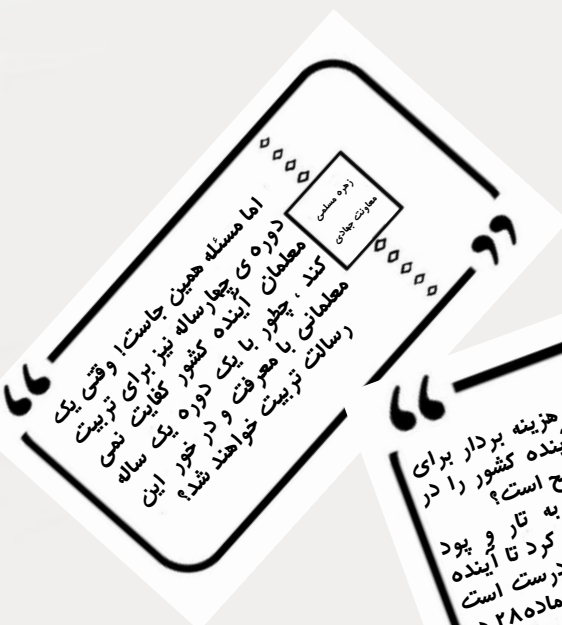 زهره مسلمی
معاونت جهادی
اما مسئله همین جاست! وقتی یک
دوره ی چهارساله نیز برای تربیت
معلمان آینده کشور کفایت نمی
کند ، چطور با یک دوره یک ساله
معلمانی با معرفت و در خور این
رسالت تربیت خواهند شد؟
هزینه بردار برای
کشور را در
است؟
به تار و پود
کرد تا آینده
درست است
ماده۲۸